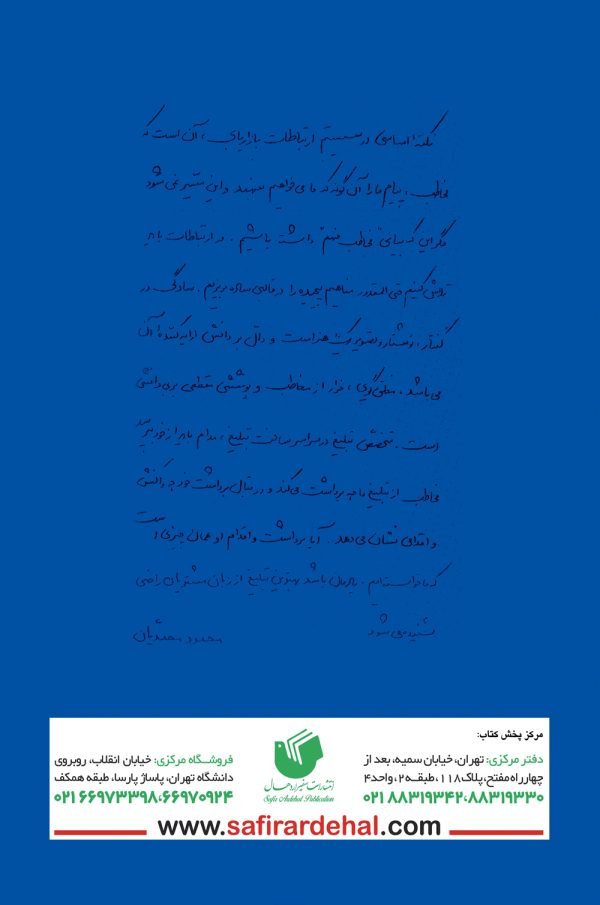 نکتهٔ اساسی در سیستم ارتباطات بازاریابی، آن است که
مخاطب، پیام ما را آن گونه که ما می‌خواهیم بفهمد و این میسّر نمی‌شود
مگر این که بیانی "مخاطب فهم" داشته باشیم. در ارتباطات باید
تلاش کنیم حتی المقدور مفاهیم پیچیده را در قالبی ساده بریزیم. سادگی در
گفتار، نوشتار و تصویر یک هنر است و دال بر دانش ارایه کنندهٔ آن
می‌باشد. مغلق گویی، فرار از مخاطب و پوششی مقطعی بر بی‌دانشی
است. متخصص تبلیغ در سراسر ساخت تبلیغ، مدام باید از خود بپرسد
مخاطب از تبلیغ ما چه برداشت می‌کند و در قبال برداشت خود چه واکنش
و اقدامی نشان می‌دهد. آیا برداشت و اقدام او همان چیزی است
که ما خواسته‌ایم. یادمان باشد بهترین تبلیغ از زبان مشتریان راضی
شنیده می‌شود
محمود محمدیان
مرکز پخش کتاب:
دفتر مرکزی: تهران، خیابان سمیه، بعد از
چهارراه مفتح، پلاک ۱۱۸، طبقه ۲، واحد ۴
۰۲۱ ۸۸۳۱۹۳۴۲،۸۸۳۱۹۳۳۰
انتشارات سفیر اردهال
Safir Ardehal Publication
فروشگاه مرکزی: خیابان انقلاب، روبروی
دانشگاه تهران، پاساژ پارسا، طبقه همکف
۰۲۱ ۶۶۹۷۳۳۹۸،۶۶۹۷۰۹۲۴
www.safirardehal.com